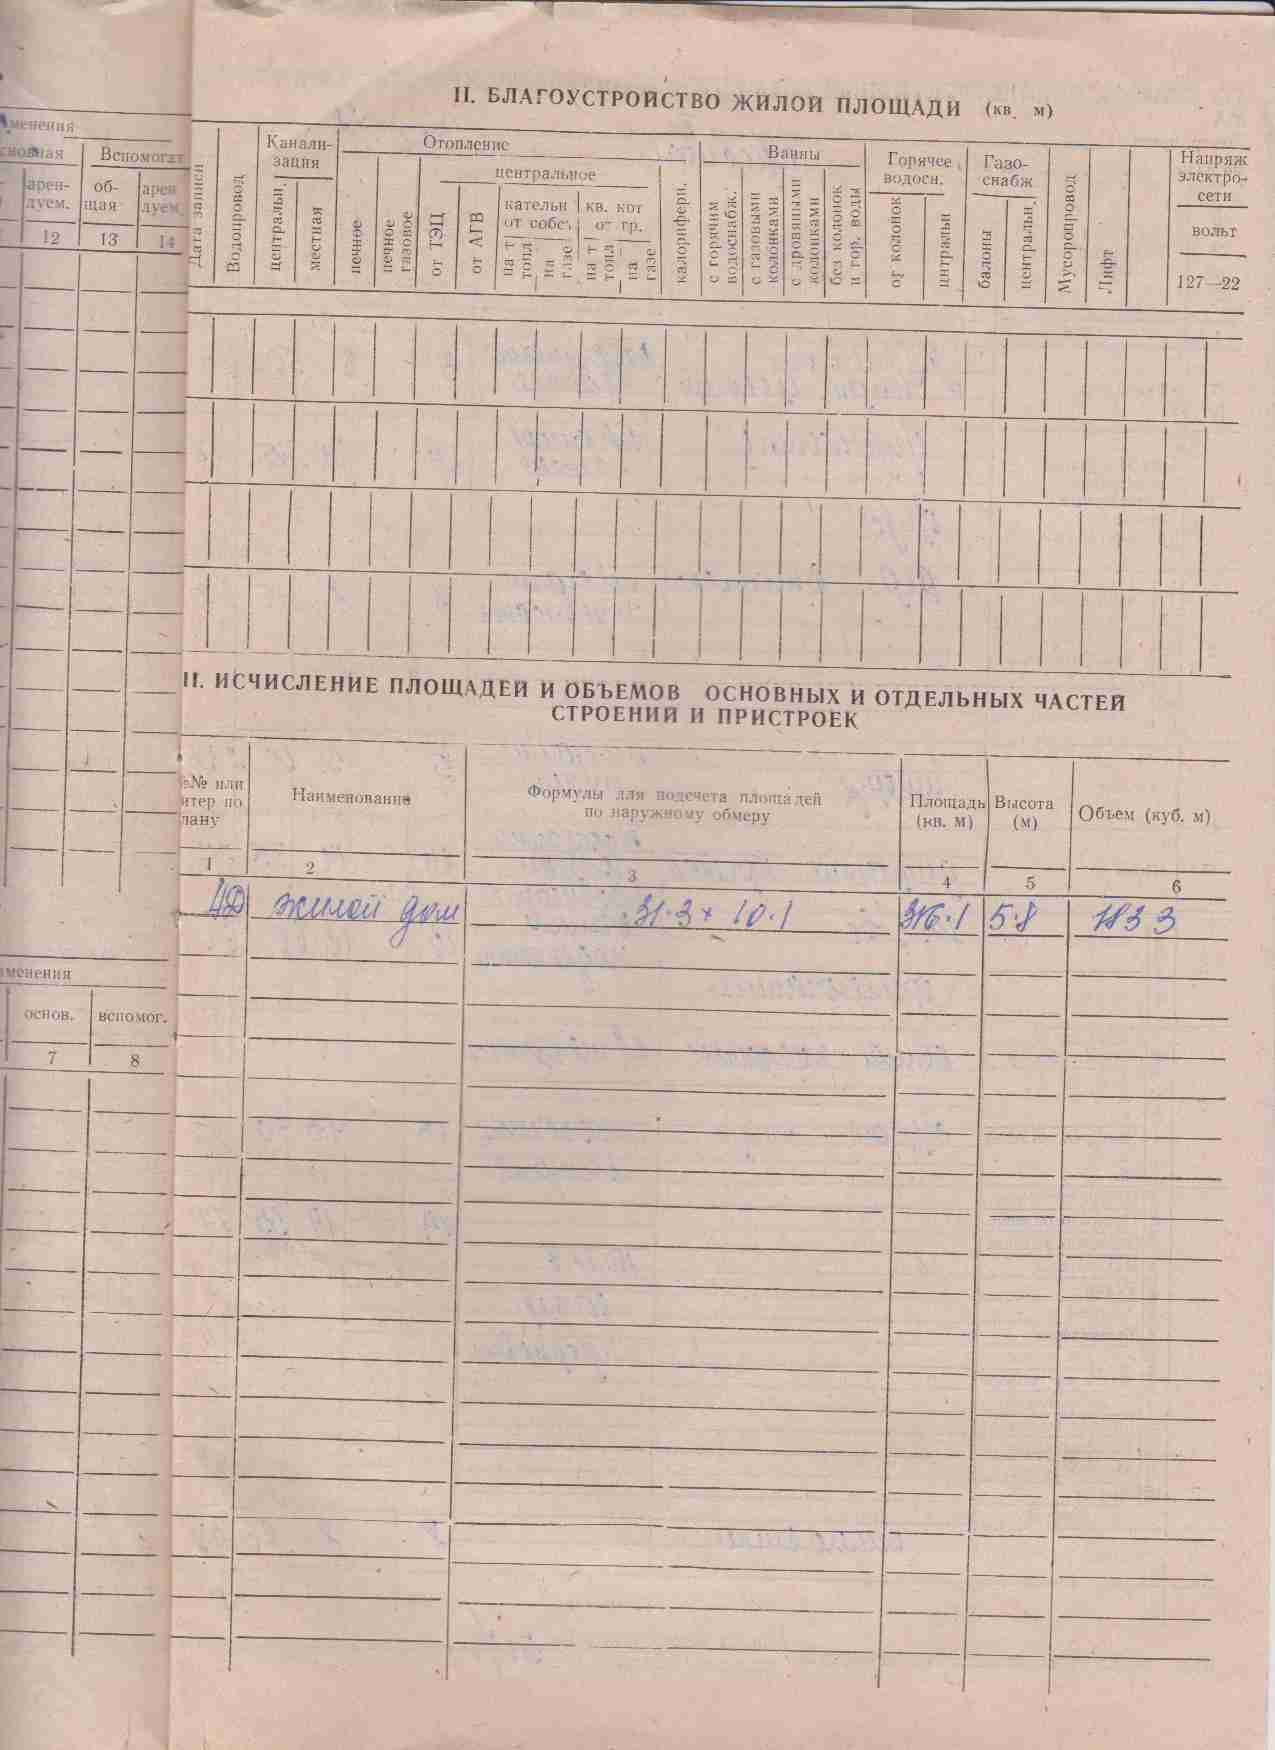 II. БЛАГОУСТРОЙСТВО ЖИЛОЙ ПЛОЩАДИ (кв. м)
менения
Вспомогат
арен-
дуем.
об-
щая
арен
дуем.
12 13 14
Дата записи
Водопровод
Канали-
зация
централын.
местная
Отопление
печное
печное
газовое
центральное
от ТЭЦ
от АГВ
кательн
от собст.
на т
топл
на
газе
кв. кот
от гр.
на т
топл
на
газе
калорифери.
Ванны
с горячим
водоснабж.
с газовыми
колонками
с дровяными
колонками
без колонок
и гор. воды
Горячее
водосн.
от колонок
цнтральн
Газо-
снабж
балоны
центральн.
Мусоропровод
Лифт
Напряж
электро-
сети
вольт
127—22
II. ИСЧИСЛЕНИЕ ПЛОЩАДЕЙ И ОБЪЕМОВ ОСНОВНЫХ И ОТДЕЛЬНЫХ ЧАСТЕЙ
СТРОЕНИЙ И ПРИСТРОЕК
№№ или
итер по
лану
Наименование
Формулы для подсчета площадей
по наружному обмеру
Площадь
(кв. м)
Высота
(м)
Объем (куб. м)
1 2 3 4 5 6
жилой дом 31.3 × 10.1 316.1 5.8 1833
менения
основ. вспомог.
7 8